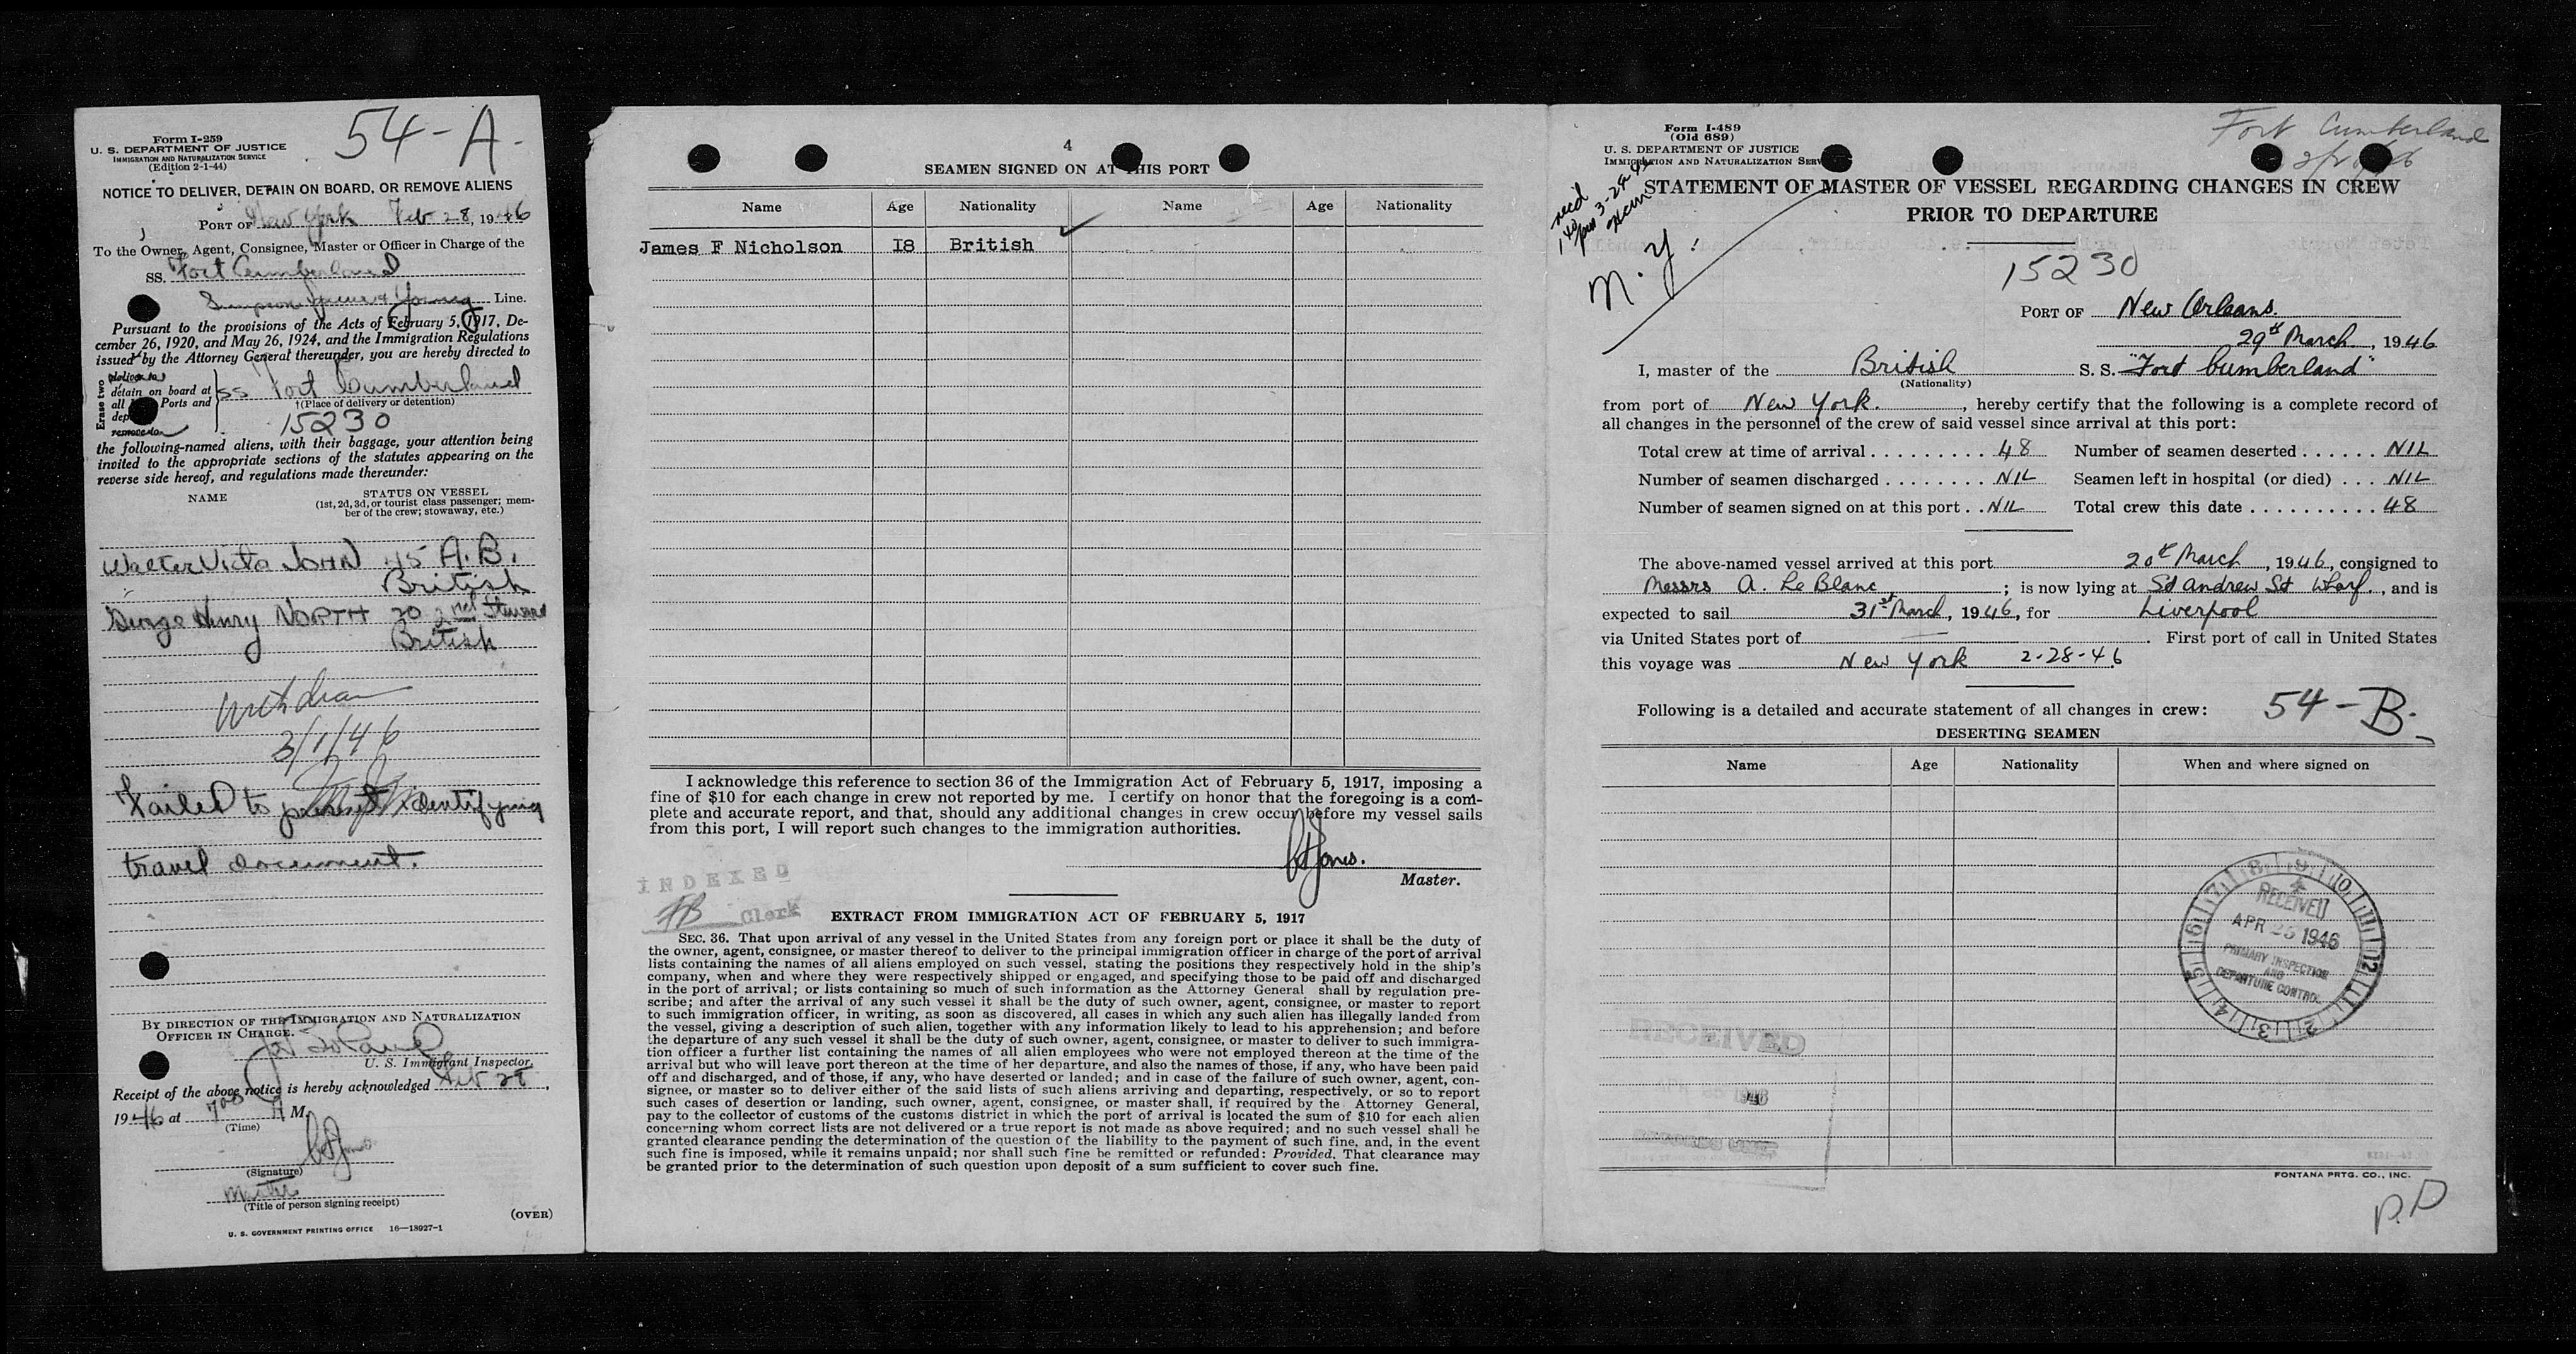 54-A.
Form I-259
U. S. DEPARTMENT OF JUSTICE
IMMIGRATION AND NATURALIZATION SERVICE
(Edition 2-1-44)
NOTICE TO DELIVER, DETAIN ON BOARD, OR REMOVE ALIENS
PORT OF New York Feb 28, 1946
To the Owner, Agent, Consignee, Master or Officer in Charge of the
SS. Fort Cumberland
Young Line.
Pursuant to the provisions of the Acts of February 5, 1917, De-
cember 26, 1920, and May 26, 1924, and the Immigration Regulations
issued by the Attorney General thereunder, you are hereby directed to
Erase two
deliver to
detain on board at
all Ports and
SS Fort Cumberland
†(Place of delivery or detention)
remove to
15230
the following-named aliens, with their baggage, your attention being
invited to the appropriate sections of the statutes appearing on the
reverse side hereof, and regulations made thereunder:
NAME STATUS ON VESSEL
(1st, 2d, 3d, or tourist class passenger; mem-
ber of the crew; stowaway, etc.)
Walter Victor JOHN 45 A.B.
British
George Henry NORTH 20 2nd Steward
British
3/1/46
Failed to present identifying
travel document.
BY DIRECTION OF THE IMMIGRATION AND NATURALIZATION
OFFICER IN CHARGE.
U. S. Immigrant Inspector.
Receipt of the above notice is hereby acknowledged Feb 28,
1946 at 700 A M.
(Time)
(Signature)
Master
(Title of person signing receipt)
(OVER)
U. S. GOVERNMENT PRINTING OFFICE 16—18927-1
4
SEAMEN SIGNED ON AT THIS PORT
Name Age Nationality Name Age Nationality
James F Nicholson I8 British
I acknowledge this reference to section 36 of the Immigration Act of February 5, 1917, imposing a
fine of $10 for each change in crew not reported by me. I certify on honor that the foregoing is a com-
plete and accurate report, and that, should any additional changes in crew occur before my vessel sails
from this port, I will report such changes to the immigration authorities.
Jones.
Master.
INDEXED
Clerk
EXTRACT FROM IMMIGRATION ACT OF FEBRUARY 5, 1917
SEC. 36. That upon arrival of any vessel in the United States from any foreign port or place it shall be the duty of
the owner, agent, consignee, or master thereof to deliver to the principal immigration officer in charge of the port of arrival
lists containing the names of all aliens employed on such vessel, stating the positions they respectively hold in the ship's
company, when and where they were respectively shipped or engaged, and specifying those to be paid off and discharged
in the port of arrival; or lists containing so much of such information as the Attorney General shall by regulation pre-
scribe; and after the arrival of any such vessel it shall be the duty of such owner, agent, consignee, or master to report
to such immigration officer, in writing, as soon as discovered, all cases in which any such alien has illegally landed from
the vessel, giving a description of such alien, together with any information likely to lead to his apprehension; and before
the departure of any such vessel it shall be the duty of such owner, agent, consignee, or master to deliver to such immigra-
tion officer a further list containing the names of all alien employees who were not employed thereon at the time of the
arrival but who will leave port thereon at the time of her departure, and also the names of those, if any, who have been paid
off and discharged, and of those, if any, who have deserted or landed; and in case of the failure of such owner, agent, con-
signee, or master so to deliver either of the said lists of such aliens arriving and departing, respectively, or so to report
such cases of desertion or landing, such owner, agent, consignee, or master shall, if required by the Attorney General,
pay to the collector of customs of the customs district in which the port of arrival is located the sum of $10 for each alien
concerning whom correct lists are not delivered or a true report is not made as above required; and no such vessel shall be
granted clearance pending the determination of the question of the liability to the payment of such fine, and, in the event
such fine is imposed, while it remains unpaid; nor shall such fine be remitted or refunded: Provided, That clearance may
be granted prior to the determination of such question upon deposit of a sum sufficient to cover such fine.
Form I-489
(Old 689)
U. S. DEPARTMENT OF JUSTICE
IMMIGRATION AND NATURALIZATION SERV
Fort Cumberland
N.Y.
STATEMENT OF MASTER OF VESSEL REGARDING CHANGES IN CREW
PRIOR TO DEPARTURE
15230
PORT OF New Orleans.
29th March, 1946
I, master of the British S. S. "Fort Cumberland"
(Nationality)
from port of New York., hereby certify that the following is a complete record of
all changes in the personnel of the crew of said vessel since arrival at this port:
Total crew at time of arrival 48 Number of seamen deserted NIL
Number of seamen discharged NIL Seamen left in hospital (or died) NIL
Number of seamen signed on at this port NIL Total crew this date 48
The above-named vessel arrived at this port 20th March, 1946, consigned to
Messrs A. Le Blanc; is now lying at St Andrew St Wharf., and is
expected to sail 31st March, 1946, for Liverpool
via United States port of —. First port of call in United States
this voyage was New York 2-28-46
Following is a detailed and accurate statement of all changes in crew: 54-B.
DESERTING SEAMEN
Name Age Nationality When and where signed on
RECEIVED
APR 25 1946
PRIMARY INSPECTION
AND
DEPARTURE CONTROL
RECEIVED
1946
FONTANA PRTG. CO., INC.
P.D